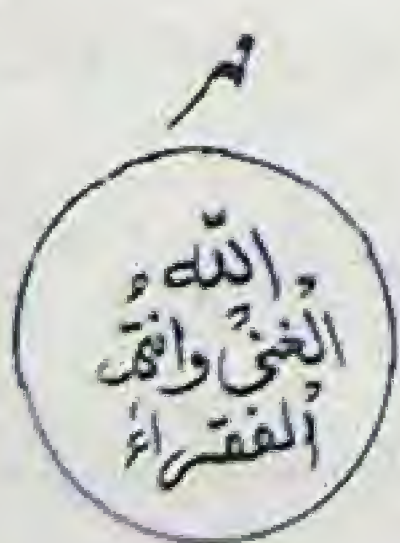 مهر
اللّٰه
الْغنیُّ وانتمُ
الْفقراءُ